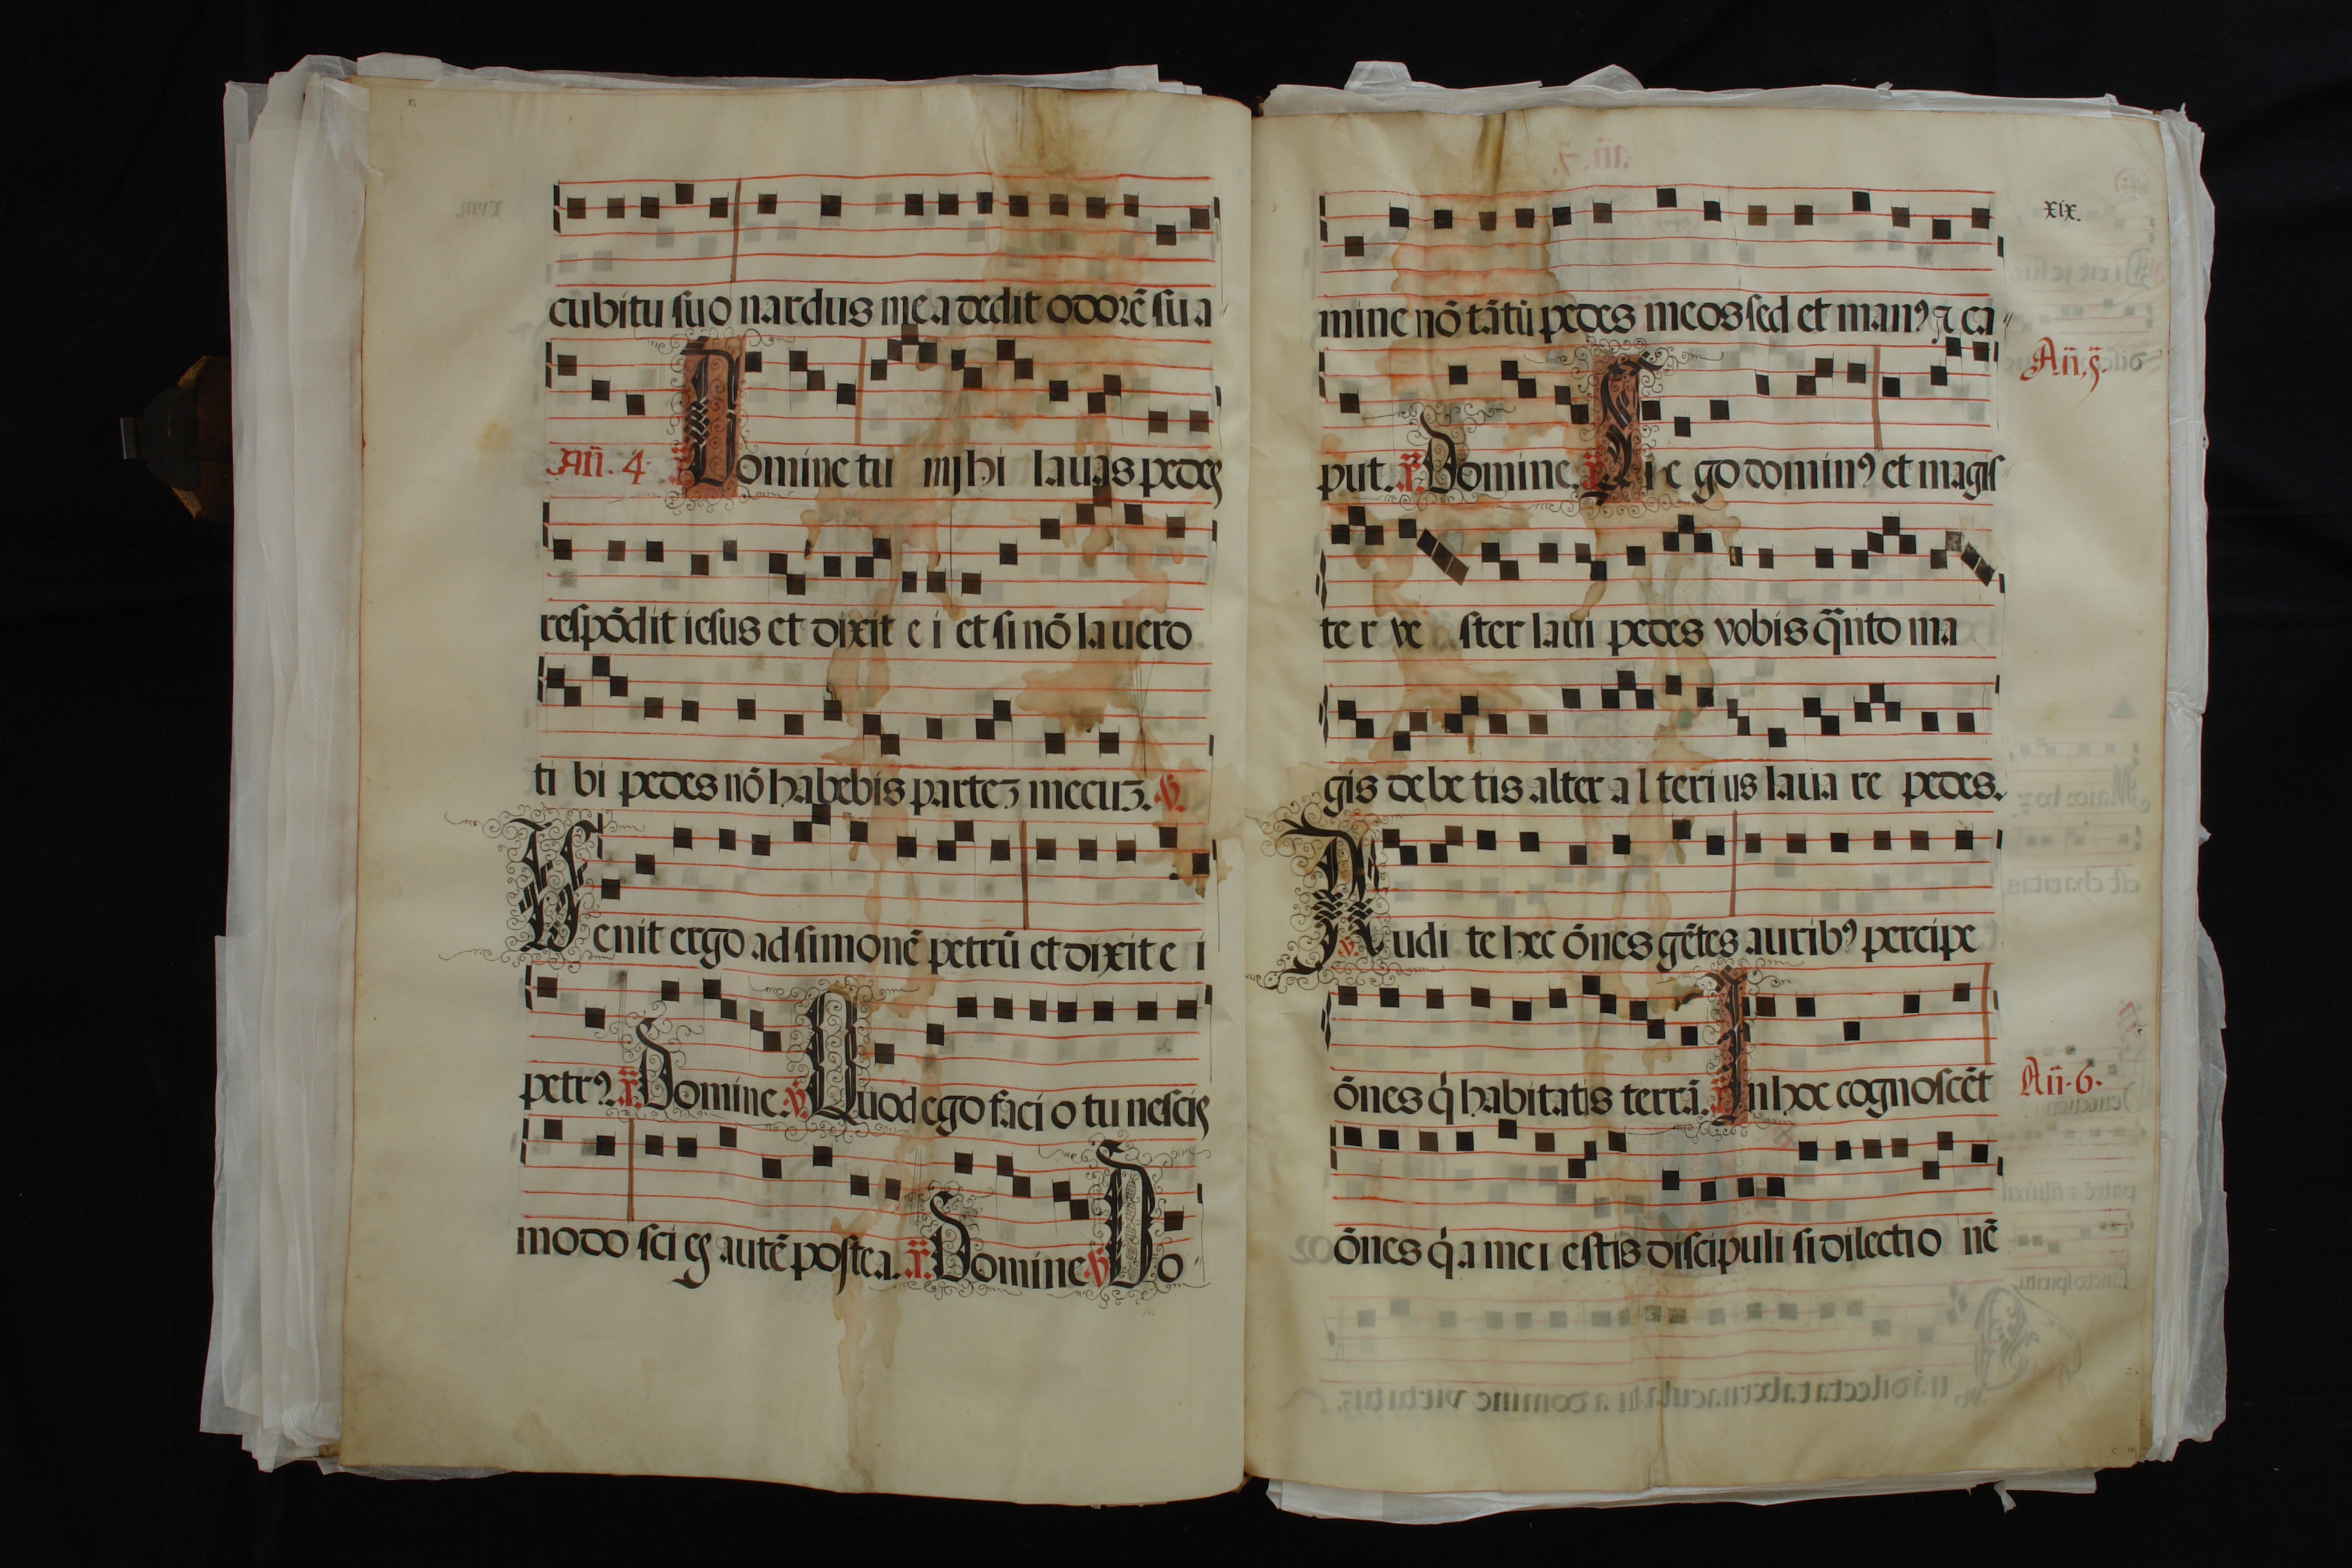 cubitu suo nardus mea dedit odorē sua
Añ. 4. Domine tu mihi lauas pedes
respōdit iesus et dixit ei et si nō lauero
tibi pedes nō habebis parteʒ mecuʒ. ꝟ.
Venit ergo ad simonē petrū et dixit ei
petrꝰ. Domine. ꝟ. Quod ego facio tu nescis
modo scies autē postea. Domine ꝟ Do
xix.
mine nō tātū pedes meos sed et manꝰ ⁊ ca
Añ. 5.
put. Domine. Si ego dominꝰ et magis
ter vester laui pedes vobis q̄nto ma
gis debetis alter alterius lauare pedes.
ꝟ. Audite hec ōnes gētes auribꝰ percipe
ōnes q̇ habitatis terrā. In hoc cognoscēt
Añ. 6.
ōnes q̇a mei estis discipuli si dilectionē